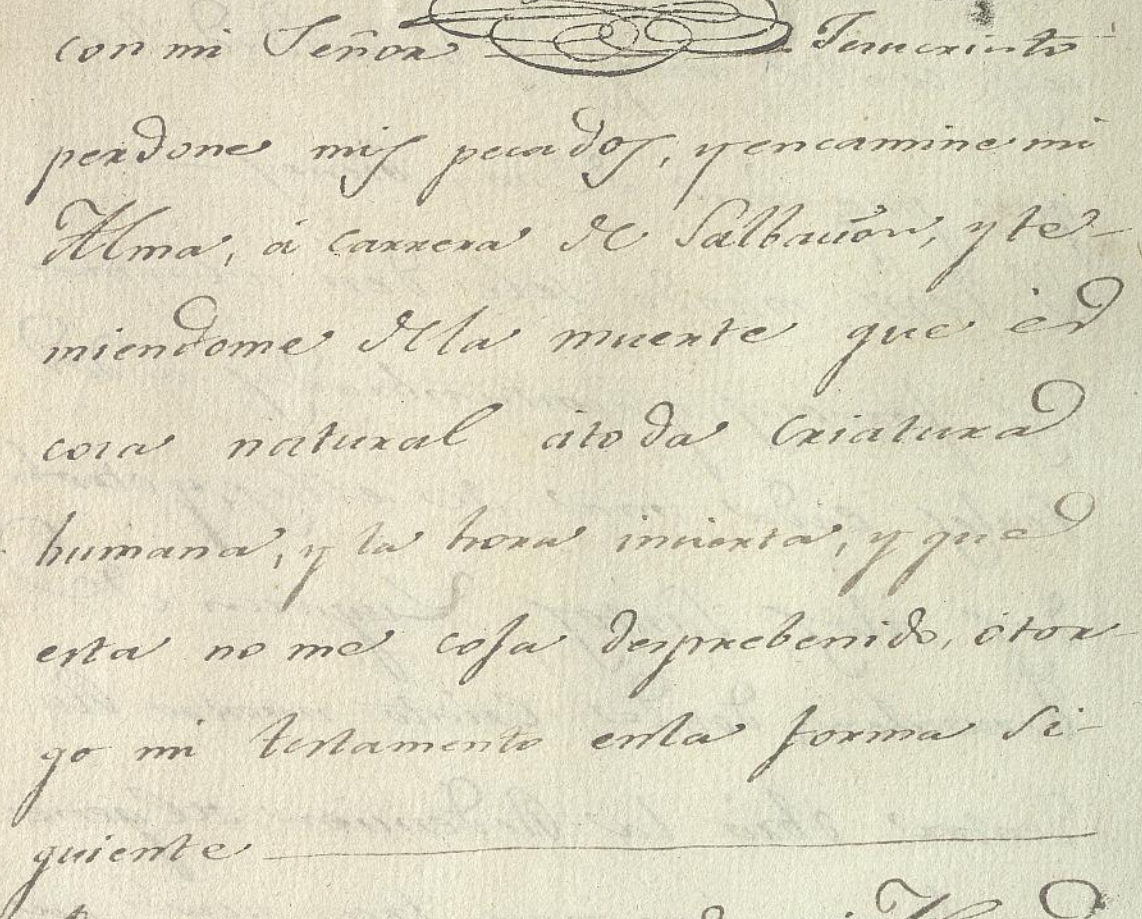 con mi Señor Jesucristo
perdone mis pecados, y encamine mi
Alma, á carrera de Salbacion, y te-
miendome de la muerte que es
cosa natural á toda criatura
humana, y la hora incierta, y que
esta no me cosa desprebenido, otor
go mi testamento enla forma si-
guiente